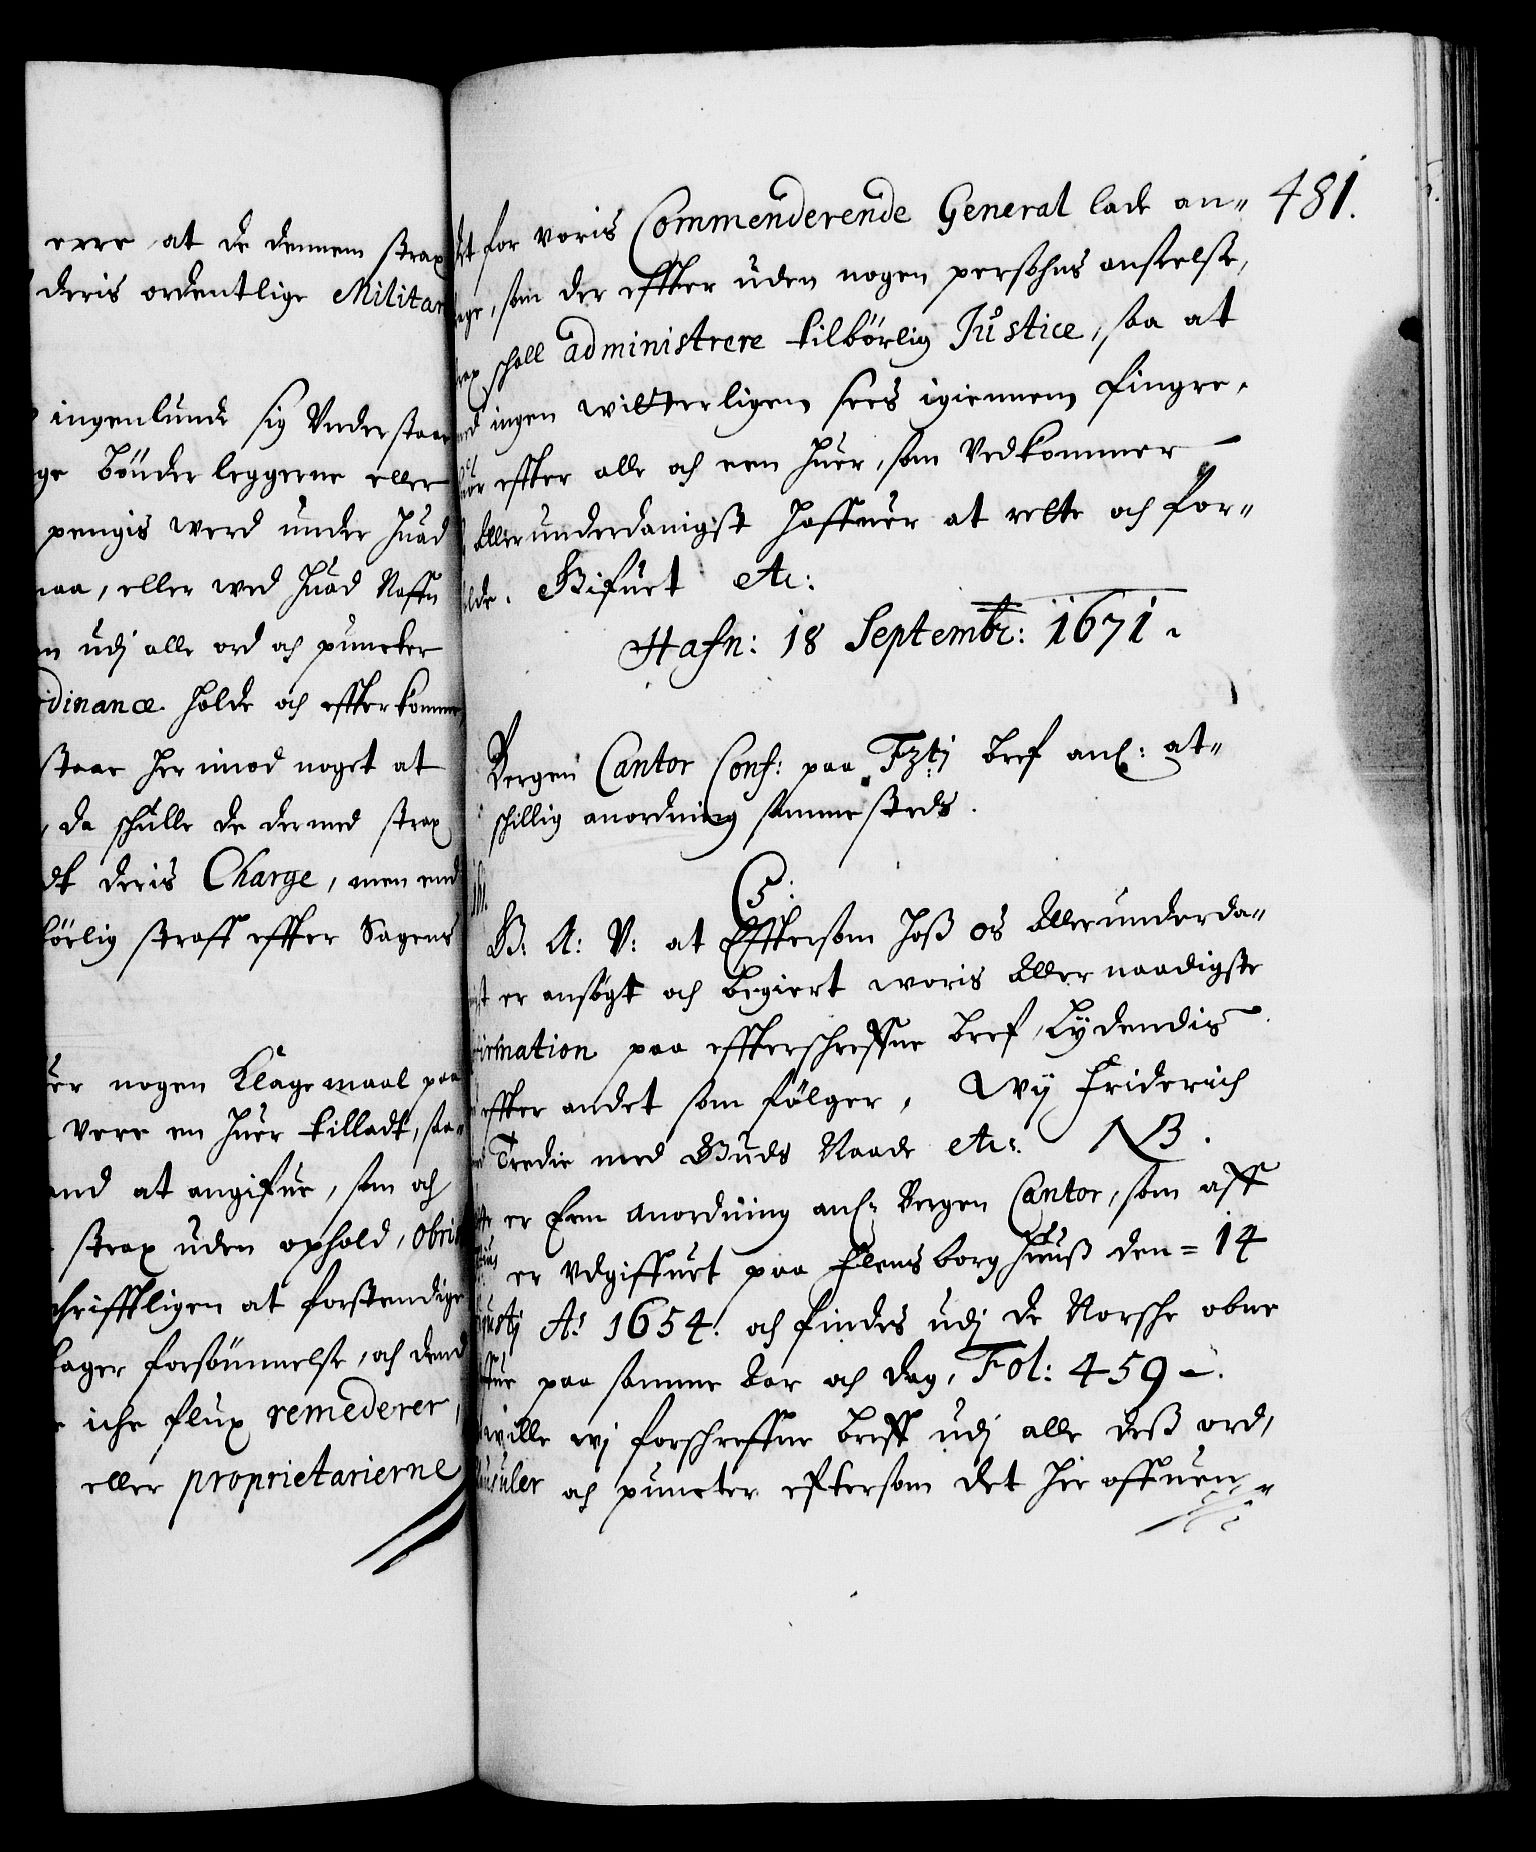 erre at de dennem strax
deris ordentlige Militar
ingenlunde sig Understaae
ge Bønder leggerne eller
pengis werd under huad
maa, eller wed huad Naffn
udj alle ord och puncter
dinance holde och effterkomme
staar her imod noget at
, da schulle de dermed strax
deris Charge, men end
børlig straff effter Sagens
er nogen Klagemaal paa
vere en huer tilladt, saa
and at angifue, som och
strax uden ophold, Obri
chrifftligen at forstendige
lager forsømmelse, och dend
iche flux remederer,
eller proprietarierne
481.
det for voris Commenderende General lade an-
ge, som der effter uden nogen persohns anseelse,
strax schall administrere tilbørlig Justice, saa at
med ingen witterligen sees igiennem fingre,
huor effter alle och een huer, som Vedkommer
Allerunderdanigst haffuer at rette och for-
holde. Gifuet etc:
Hafn: 18 Septembr: 1671.
Bergen Cantor Conf: paa F3tj bref anl: at-
schillig anordning sammesteds.
C5:
G: A: V: at Eftersom hoss os Allerunderda-
nigst er ansøgt och begiert woris Aller naadigste
firmation paa effterschreffne bref, Lydendis
effter andet som følger, Wij Friderich
Tredie med Guds Naade etc: NB.
er Een anordning anl: Bergen Cantor, som aff
er Udgiffuet paa Flensborghuuss den 14
Augustj Ao 1654. och findes udj de Norsche obne
paa samme Aar och dag, Fol: 459.
wille wj forschreffne breff udj alle dess ord,
Clausuler och puncter eftersom det her offuen-